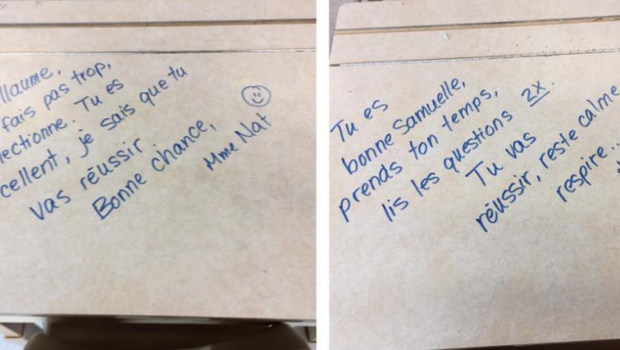 llaume,
fais pas trop,
lectionne. Tu es
cellent, je sais que tu
vas réussir.
Bonne chance,
Mme Nat
Tu es
bonne Samuelle,
prends ton temps,
lis les questions 2x.
Tu vas
réussir, reste calme
respire...